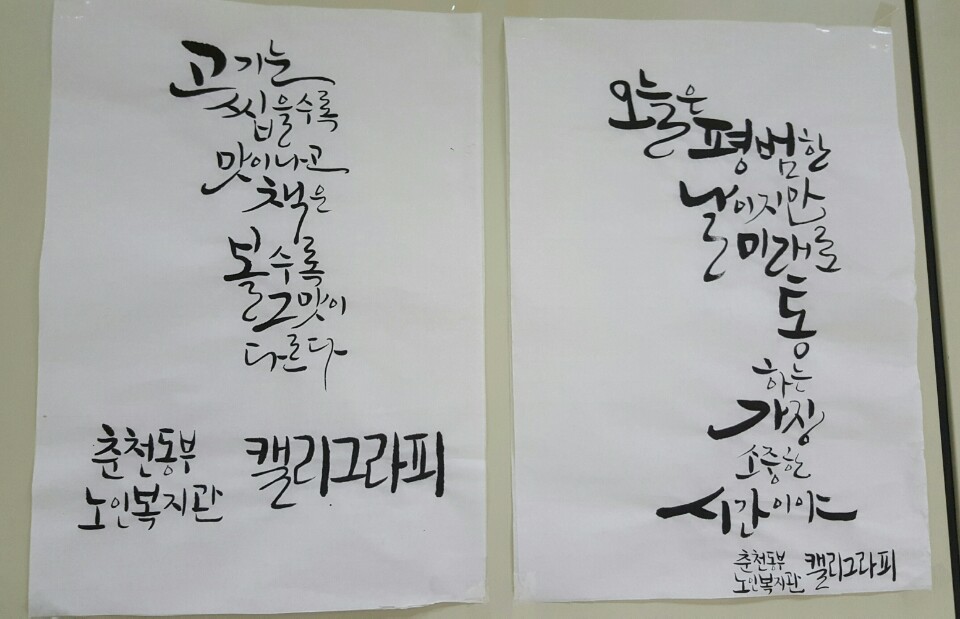 고기는
씹을수록
맛이나고
책은
볼수록
그맛이
다르다
춘천동부
노인복지관
캘리그라피
오늘은
평범한
날이지만
미래로
통
하는
가장
소중한
시간이야
춘천동부
노인복지관
캘리그라피